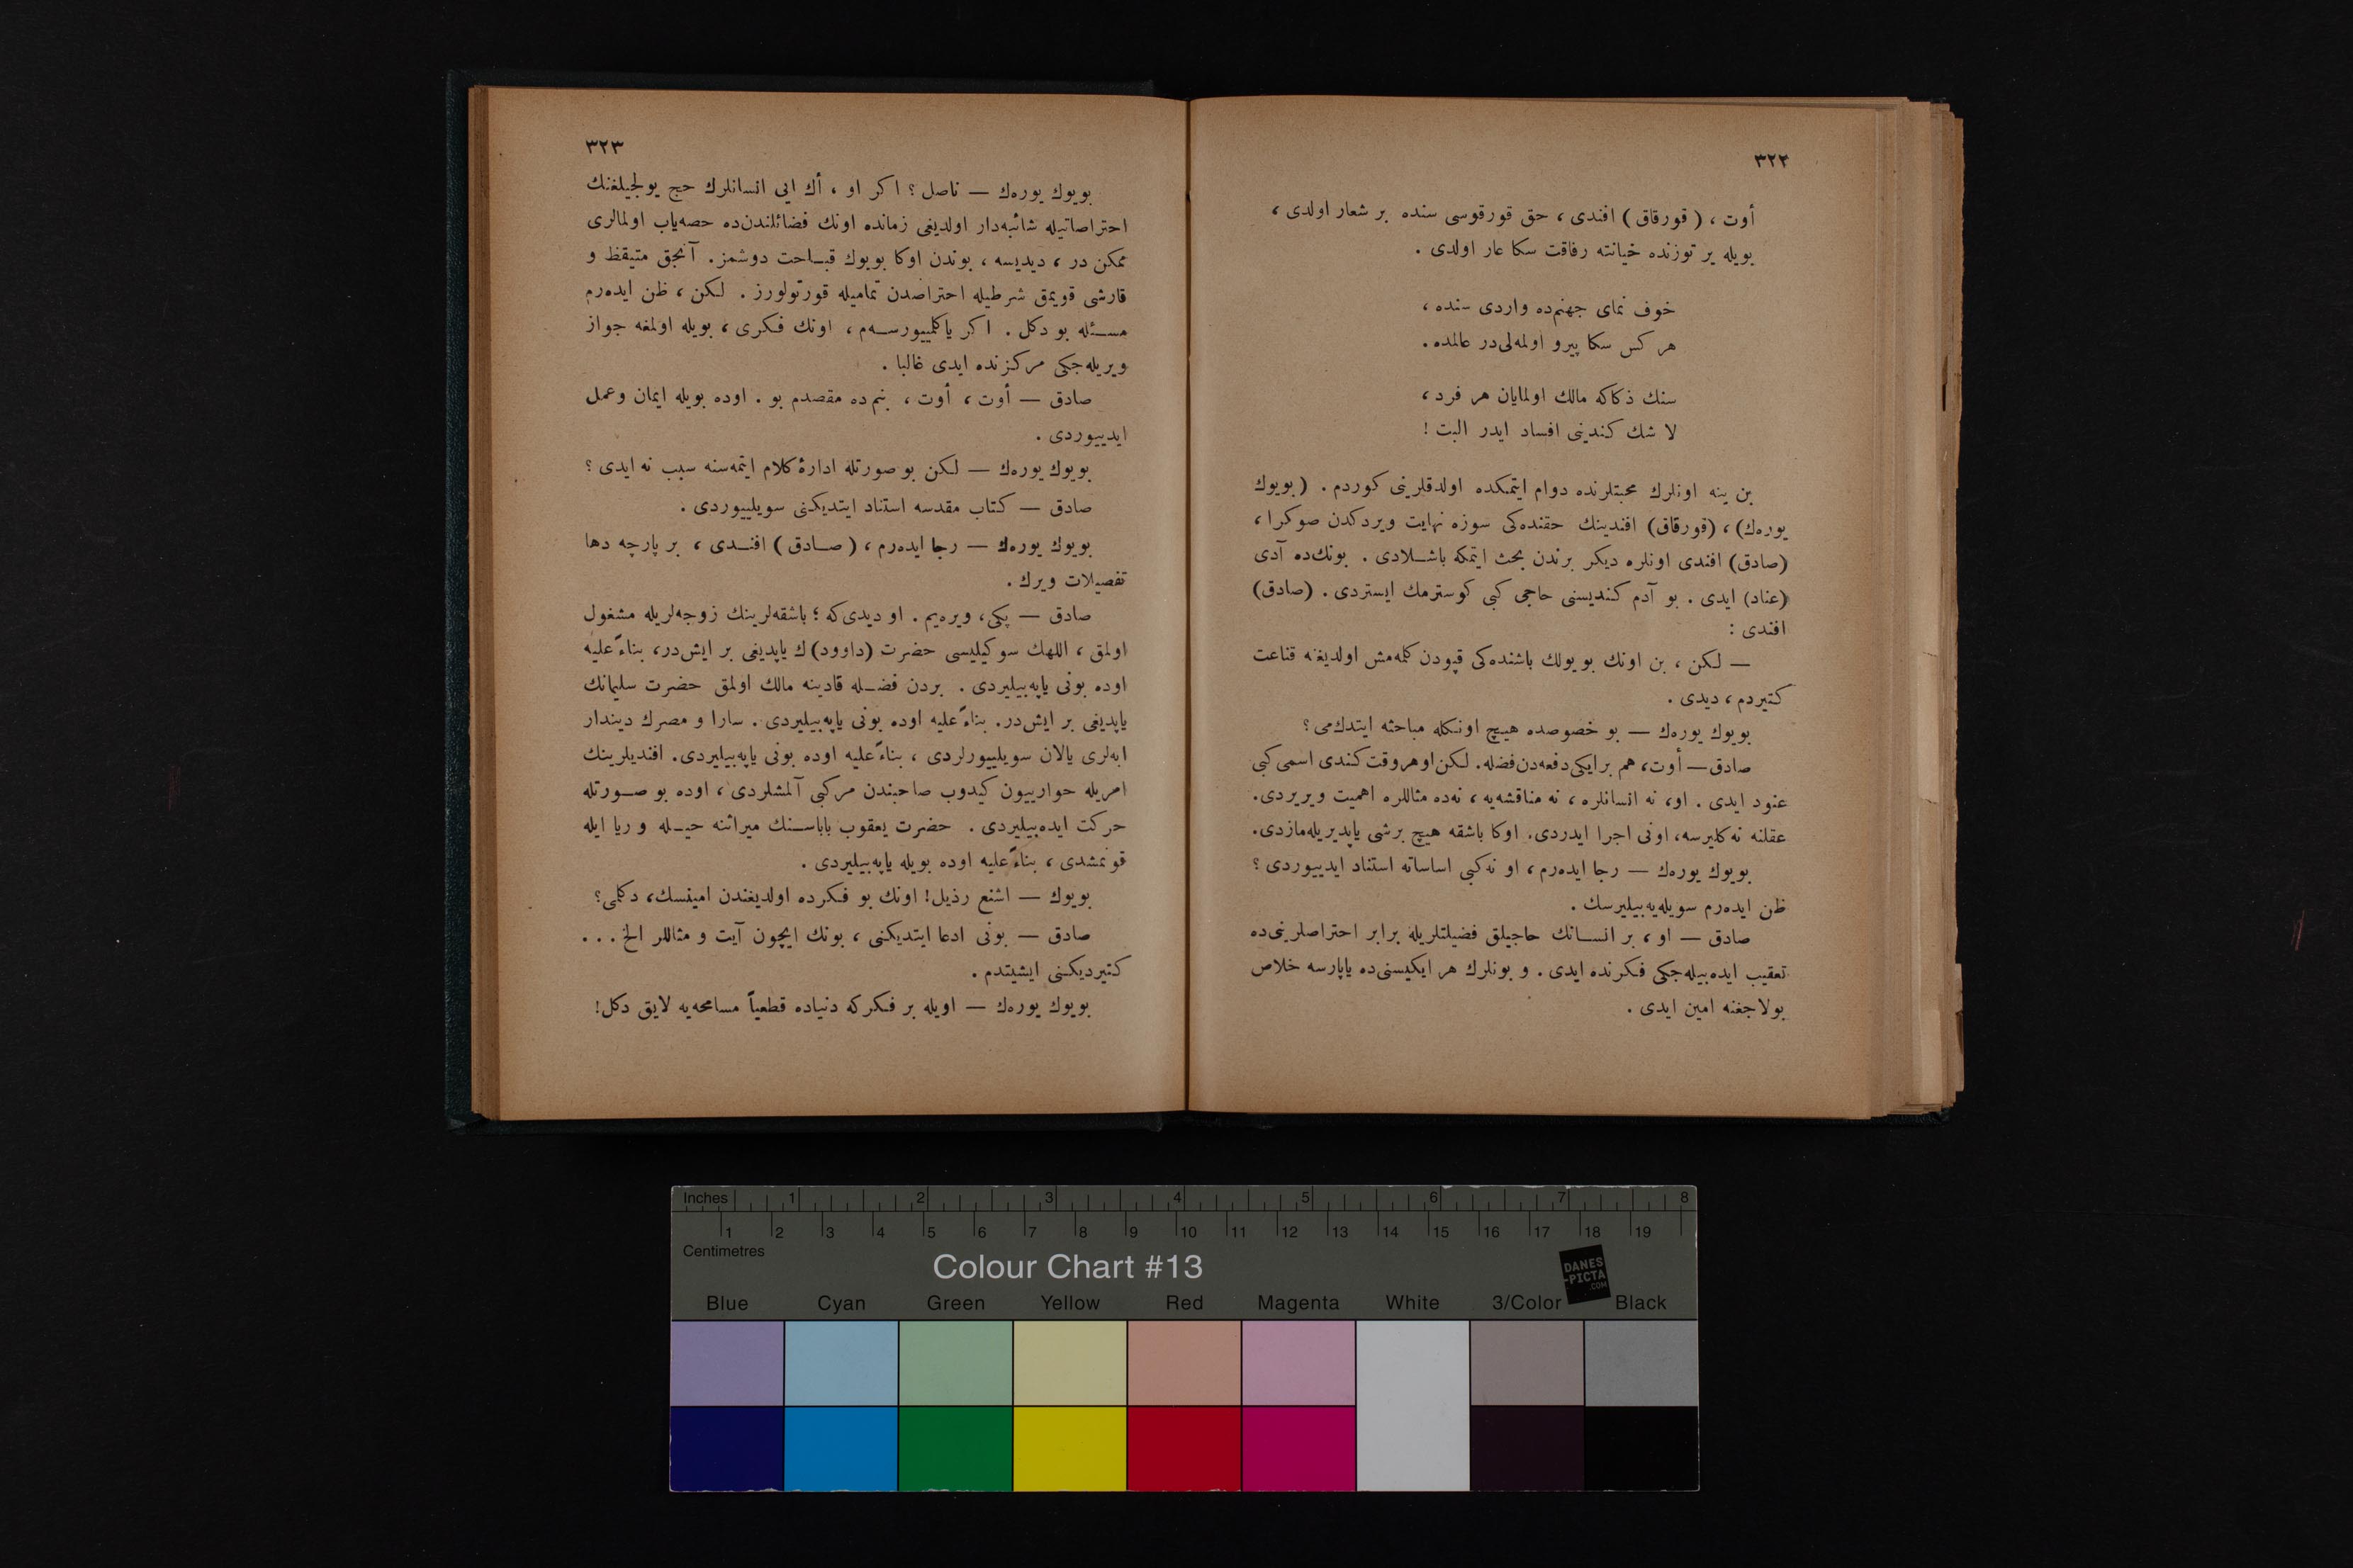 ٣٢٢
أوت ، ( قورقاق ) افندی ، حق قورقوسی سنده بر شعار اولدی ،
بویله بر توزنده خیانته رفاقت سكا عار اولدی .
خوف نمای جهنم‌ده واردی سنده ،
هر كس سكا پیرو اولمه‌لی‌در عالمده .
سنك ذكاكه مالك اولمایان هر فرد ،
لا شك كندینی افساد ایدر البت !
بن ینه اونلرك محبتلرنده دوام ایتمكده اولدقلرینی كوردم . ( بویوك
یوره‌ك) ، (قورقاق) افندینك حقنده‌كی سوزه نهایت ویردكدن صوكرا ،
(صادق) افندی اونلره دیكر برندن بحث ایتمكه باشـلادی . بونك‌ده آدی
(عناد) ایدی . بو آدم كندیسنی حاجی كبی كوسترمك ایستردی . (صادق)
افندی :
— لكن ، بن اونك بو یولك باشنده‌كی قپودن كلمه‌مش اولدیغنه قناعت
كتیردم ، دیدی .
بویوك یوره‌ك — بو خصوصده هیـچ اونكله مباحثه ایتدك‌می ؟
صادق — أوت، هم بر ایكی دفعه‌دن فضله. لكن او هر وقت كندی اسمی كبی
عنود ایدی . او، نه انسانلره ، نه مناقشه‌یه ، نه‌ده مثاللره اهمیت ویریردی.
عقلنه نه كلیرسه، اونی اجرا ایدردی. اوكا باشقه هیچ برشی یاپدیریله‌مازدی.
بویوك یوره‌ك — رجا ایده‌رم ، او نه كبی اساساته استناد ایدییوردی ؟
ظن ایده‌رم سویله‌یه‌بیلیرسك .
صادق — او ، بر انسـانك حاجیلق فضیلتلریله برابر احتراصلرینی‌ده
تعقیب ایده‌بیله‌جكی فكرنده ایدی . و بونلرك هر ایكیسنی‌ده یاپارسه خلاص
بولاجغنه امین ایدی .
٣٢٣
بویوك یوره‌ك — ناصل ؟ اكر او ، أك ایی انسانلرك حج یولجیلغنك
احتراصاتیله شائبه‌دار اولدیغی زمانده اونك فضائلندن‌ده حصه‌یاب اولمالری
ممكن در ، دیدیسه ، بوندن اوكا بویوك قبـاحت دوشمز. آنجق متیقظ و
قارشی قویمق شرطیله احتراصدن تمامیله قورتولورز . لكن ، ظن ایده‌رم
مسـئله بو دكل . اكر یاكلییورسـه‌م ، اونك فـكری ، بویله اولمغه جواز
ویریله‌جكی مركزنده ایدی غالبا .
صادق — أوت ، أوت ، بنم‌ده مقصدم بو . اوده بویله ایمان وعمل
ایدییوردی .
بویوك یوره‌ك — لـكن بو صورتله ادارۀ كلام ایتمه‌سنه سبب نه ایدی ؟
صادق — كتاب مقدسه استناد ایتدیكنی سویلییوردی .
بویوك یوره‌ك — رجا ایده‌رم ، ( صـادق ) افنـدی ، بر پارچه دها
تفصیلات ویرك .
صادق — پكی، ویره‌یم . او دیدی‌كه ؛ باشقه‌لرینك زوجه‌لریله مشغول
اولمق ، اللهك سوكیلیسی حضرت (داوود)ك یاپدیغی بر ایش‌در، بناءً علیه
اوده بونی یاپه‌بیلیردی . بردن فضـله قادینه مالك اولمق حضرت سلیمانك
یاپدیغی بر ایش‌در. بناءً علیه اوده بونی یاپه‌بیلیردی . سارا و مصرك دیندار
ابه‌لری یالان سویلییورلردی ، بناءً علیه اوده بونی یاپه‌بیلیردی. افندیلرینك
امریله حوارییون كیدوب صاحبندن مركبی آلمشلردی ، اوده بو صـورتله
حركت ایده‌بیلیردی . حضرت یعقوب باباسـنك میراثنه حیـله و ریا ایله
قونمشدی ، بناءً علیه اوده بویله یاپه‌بیلیردی .
بویوك — اشنع رذیل! اونك بو فكرده اولدیغندن امینسك، دكلمی؟
صادق — بونی ادعا ایتدیكنی ، بونك ایچون آیت و مثاللر الخ . . .
كتیردیكنی ایشیتدم .
بویوك یوره‌ك — اویله بر فكركه دنیاده قطعیاً مسامحه‌یه لایق دكل!
Inches 1 2 3 4 5 6 7 8
1 2 3 4 5 6 7 8 9 10 11 12 13 14 15 16 17 18 19
Centimetres
Colour Chart #13
DANES
-PICTA
.COM
Blue Cyan Green Yellow Red Magenta White 3/Color Black